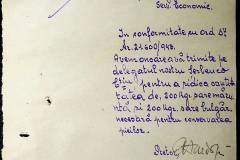 Serv. Economic.
In conformitate cu ord.
Nr. 21600/943.
Avem onoarea a trimite pe
delegatul nostru
pentru a ridica
tatea de, 200 Kgr. sare măru-
ntă si 200 Kgr. sare bulgăr,
necesară pentru conservarea
pieilor.
Director,